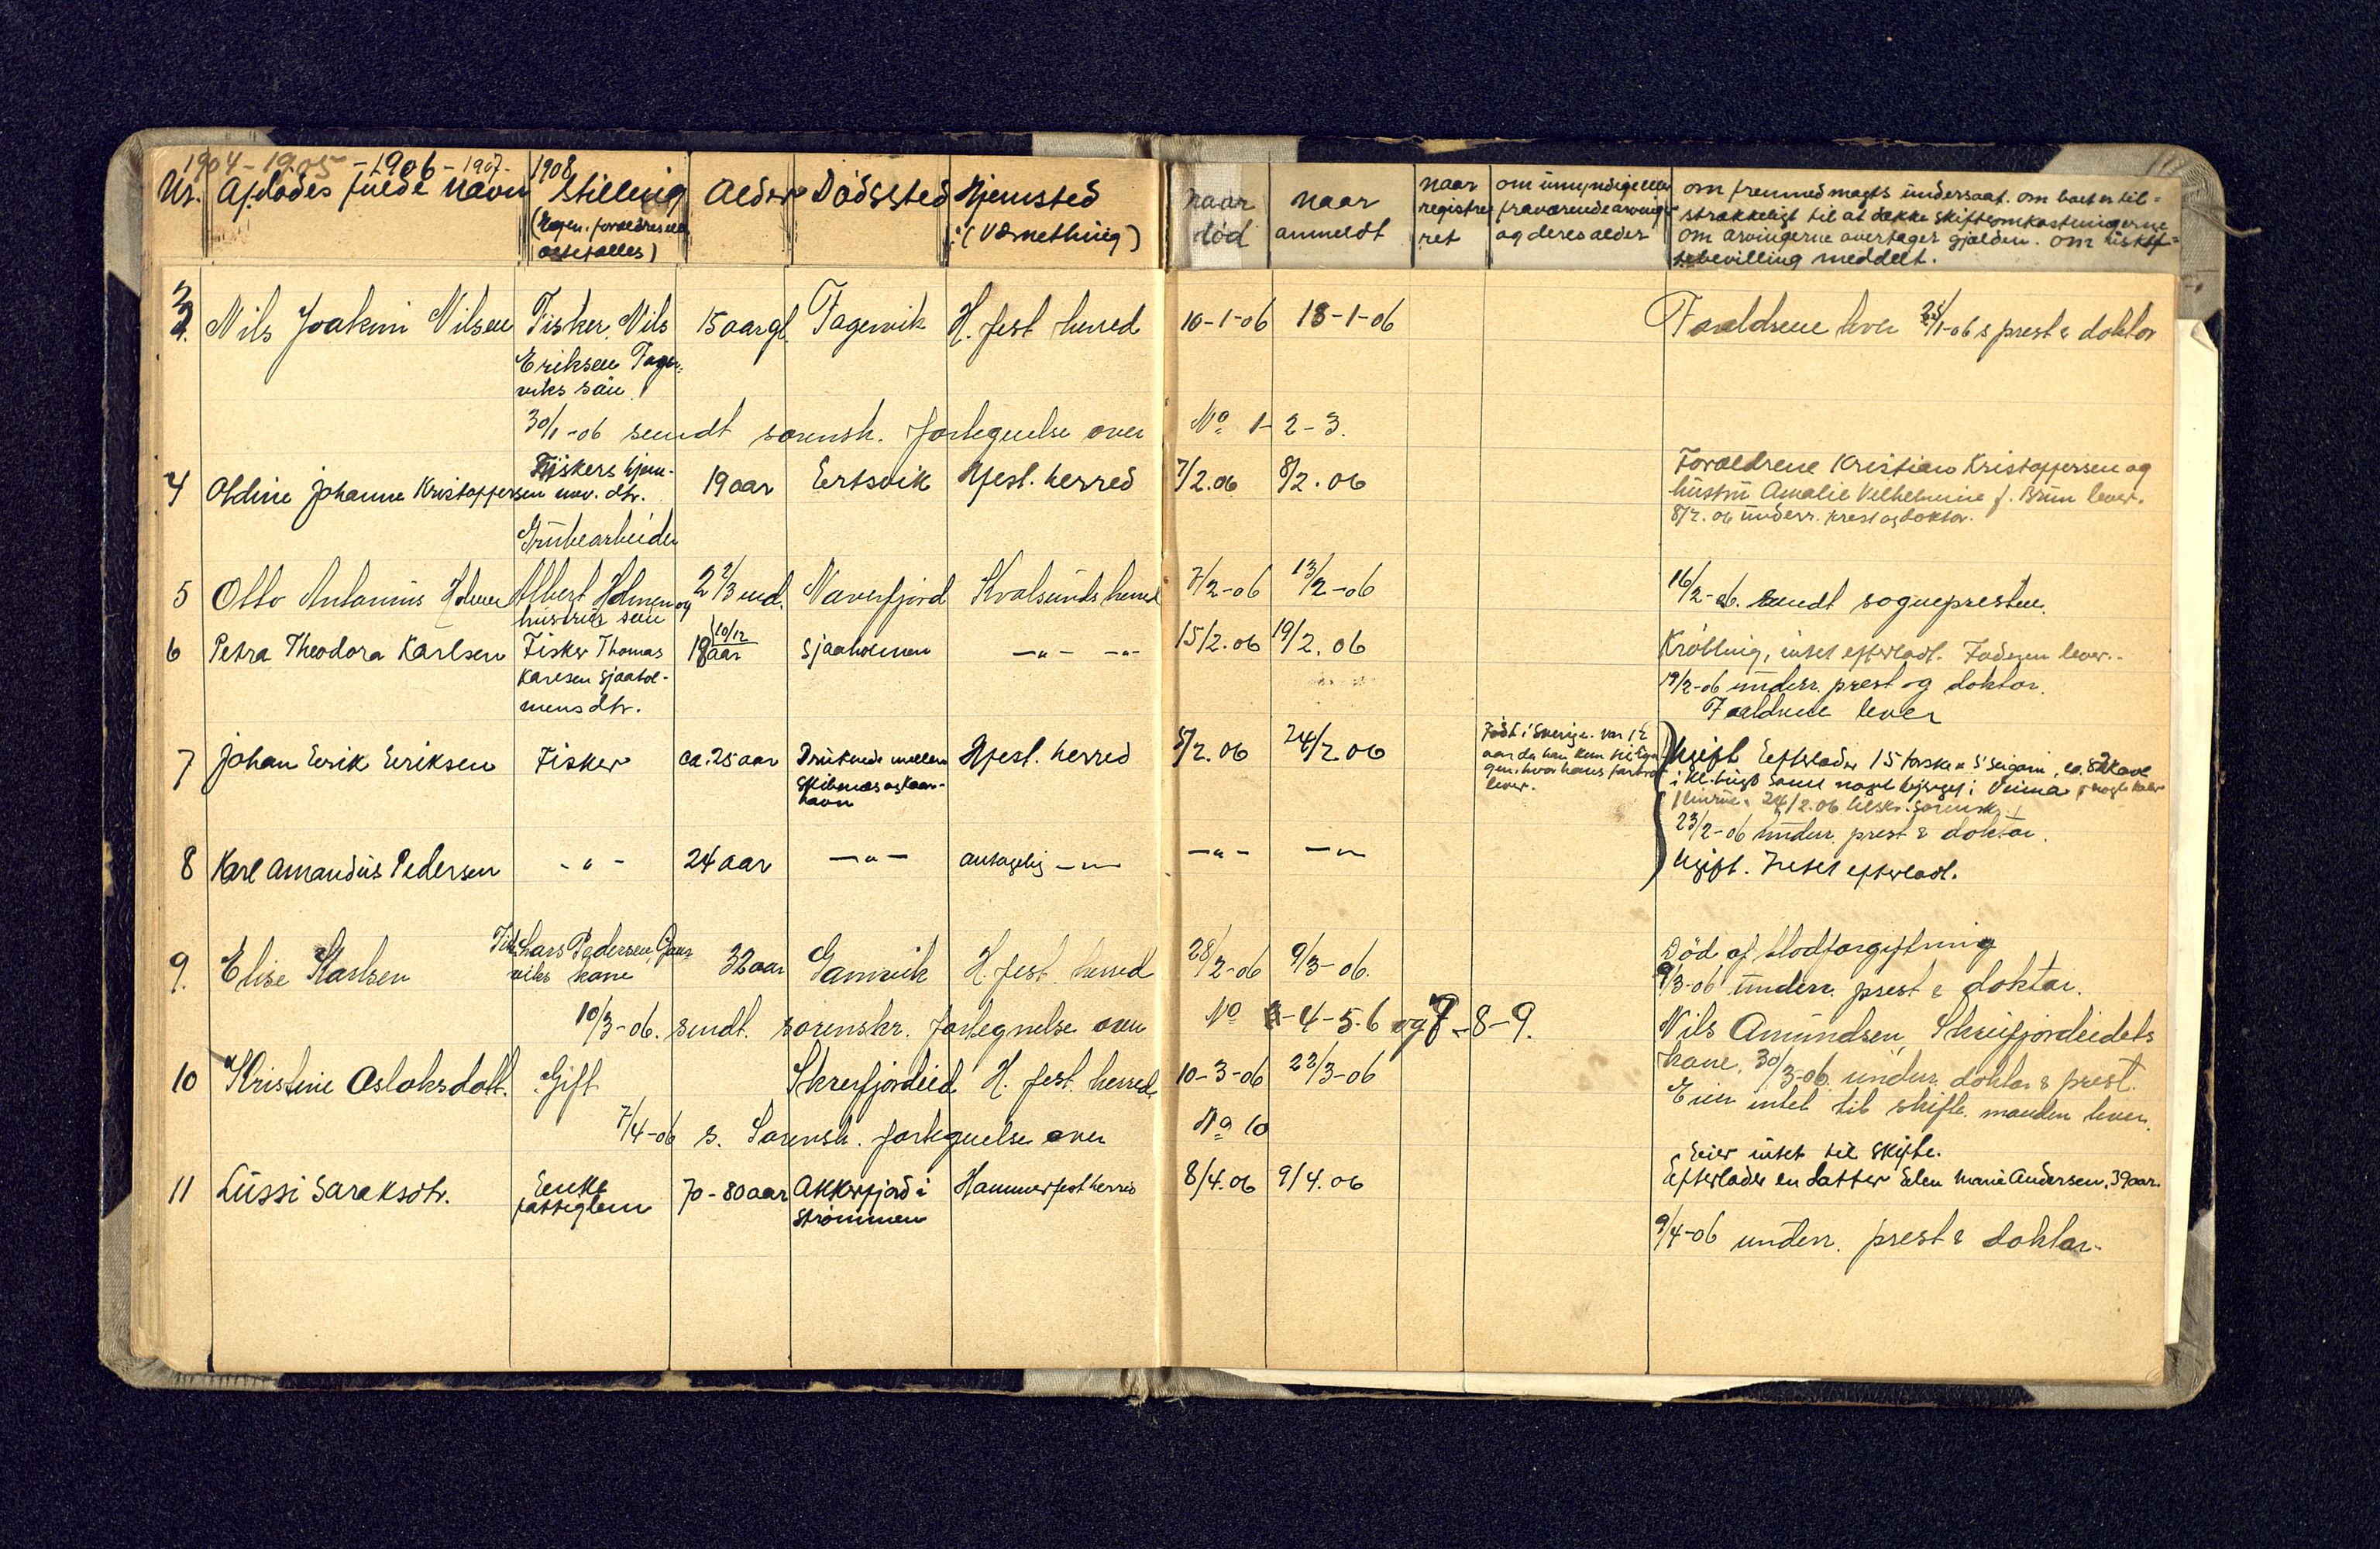 1904-1905-1906-1907-1908
Nr. Afdødes fulde navn Stilling Alder Dødssted Hjemsted naar naar naar om umyndige eller om fremmed magts undersaat. om boet er til-
(Egen. forældres eller (Værnething) død anmeldt registre fraværende arvinger strækkeligt til at dække skifteomkostningerne
ægtefælles) ret og deres alder om arvingerne overtager gjælden. om uskif-
tebevilling meddelt.
3. Nils Joakim Nilsen Fisker Nils 15 aar gl. Fagervik H. fest herred 10-1-06 18-1-06 Forældrene lever 25/1-06 s prest & doktor
Eriksen Fager-
viks søn
30/1-06 sendt sorensk. fortegnelse over No 1-2-3.
4 Oldine Johanne Kristoffersen Fiskers hjem- 19 aar Ertsvik Hfest. herred 7/2.06 8/2.06 Forældrene Kristian Kristoffersen og
mv. dtr. hustru Amalie Vilhelmine f. Brun lever.
8/2.06 underr. prest og doktor.
Grubearbeider
5 Otto Antonius Holmen Albert Holmen og 2 2/3 md. Naverfjord Kvalsunds herred 7/2-06 13/2-06 16/2-06. sendt sognepresten.
hustrus søn
6 Petra Theodora Karlsen Fisker Thomas 18 10/12 aar Sjaaholmen -"- -"- 15/2.06 19/2.06 Krøbling, intet efterladt. Faderen lever.
Karlsen Sjaahol- 19/2-06 underr. prest og doktor.
mens dtr. Forældrene lever
7 Johan Erik Eriksen Fisker ca. 25 aar Druknede mellem Hfest. herred 5/2.06 24/2.06 Født i Sverige. Var 12 Ugift Efterlader 15 torske & 5 seigarn,
aar da han kom til
Skibnes og Kaar- hvor hans far
havn lever. 24/2.06 tilskr. sorensk.
23/2-06 underr. prest & doktor.
8 Karl Amandus Pedersen -"- 24 aar -"- antagelig -"- -"- -"- Ugift. Intet efterladt.
9. Elise Karlsen Fisk. Lars Pedersen, Gam- 32 aar Gamvik H. fest herred 28/2-06 9/3-06. Død af blodforgiftning
viks kone 9/3-06 underr. prest & doktor.
10/3-06. sendt. sorenskr. fortegnelse over No -4-5-6 og 7-8-9. Nils Amundsen, Skreifjordeidets
10 Kristine Aslaksdatt. Gift Skreifjordeid H. fest. herred 10-3-06 23/3-06 kone. 30/3-06. underr. doktor & prest.
Eier intet til skifte. manden lever.
7/4-06 s. Sorensk. fortegnelse over No 10
Eier intet til skifte.
11 Lussi Saraksdtr. Enke 70-80 aar Akkerfjord i Hammerfest herred 8/4.06 9/4.06 Efterlader en datter Elen Marie Andersen, 39 aar.
fattiglem Strømmen
9/4-06 underr. prest & doktor.